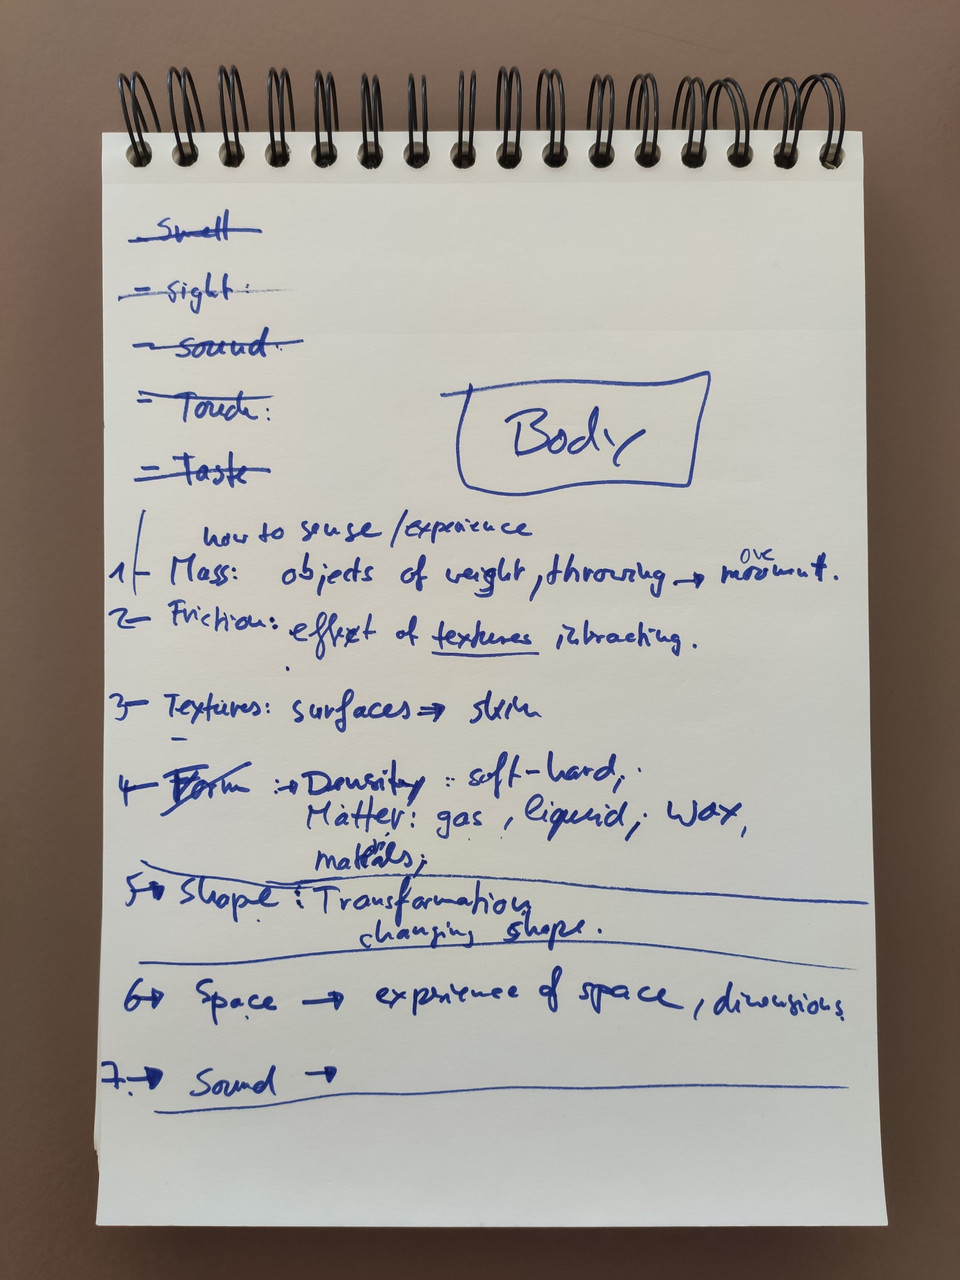 - Smell
- sight:
- sound.
- Touch:
- Taste
Body
how to sense / experience
1- Mass: objects of weight, throwing → movement.
ove
2- Friction: effect of textures interacting.
3- Textures: surfaces ⇒ skin
4- Form :→ Density : soft-hard,
Matter: gas, liquid, wax,
materials;
5→ Shape : Transformation
changing shape.
6→ Space → experience of space, dimensions
7.→ Sound →